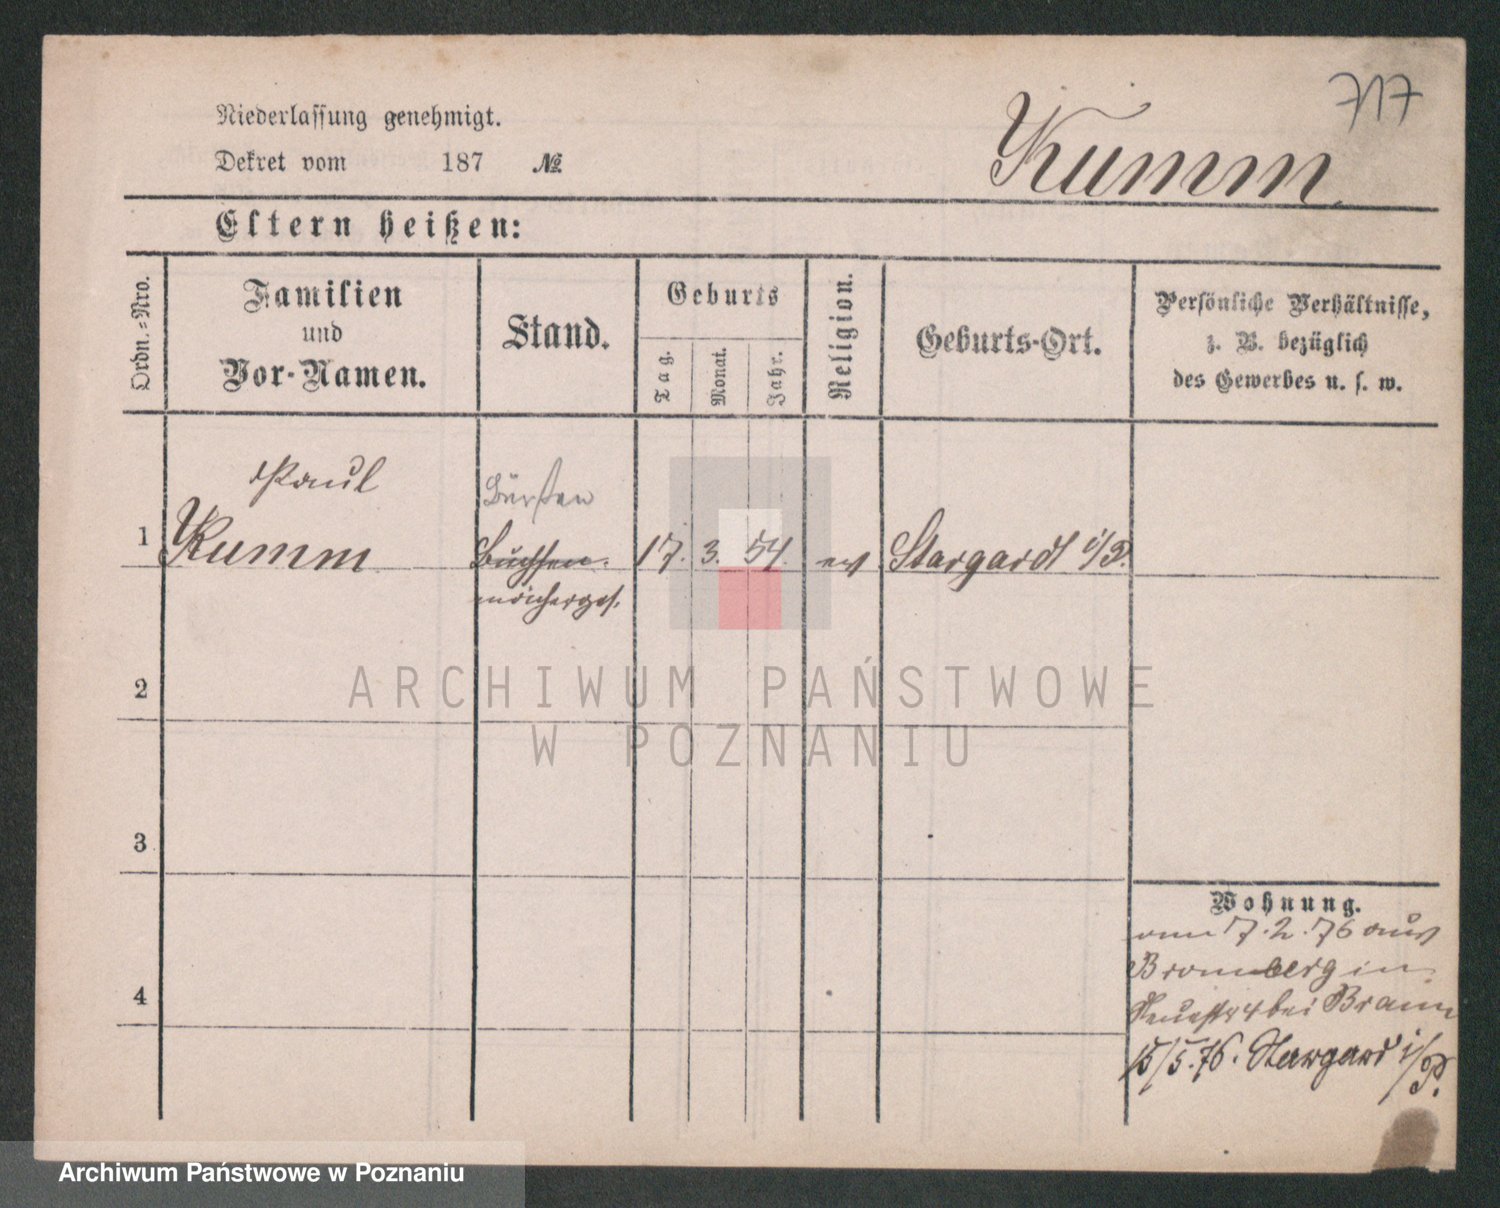 717
Niederlassung genehmigt.
Dekret vom 187 №
Kumm
Eltern heißen:
Ordn.-Nro.
Familien
und
Vor-Namen.
Stand.
Geburts
Tag.
Monat.
Jahr.
Religion.
Geburts-Ort.
Persönliche Verhältnisse,
z. B. bezüglich
des Gewerbes u. s. w.
Paul
Bürsten
1 Kumm Buchsen- 17. 3. 54. ev Stargard i/P.
macherges.
ARCHIWUM PAŃSTWOWE
W POZNANIU
2
3
4
Wohnung.
vom 7.2.76 aus
Bromberg in
Neuestr 4 bei Braun
15/5.76. Stargard i/P.
Archiwum Państwowe w Poznaniu